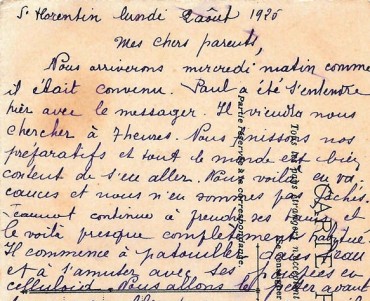 St Florentin lundi 2 août 1926
Mes chers parents,
Nous arriverons mercredi matin comme
il était convenu. Paul a été s'entendre
hier avec le messager. Il viendra nous
chercher à 7 heures. Nous finissons nos
préparatifs et tout le monde est bien
content de s'en aller. Nous voilà en va-
cances et nous n'en sommes pas fâchés.
continue à prendre ses et
le voilà presque complètement
Il commence à patouiller dans l'eau
et à s'amuser avec ses poupées en
celluloïd. Nous allons le avant
Partie réservée à la correspondance
CARTE